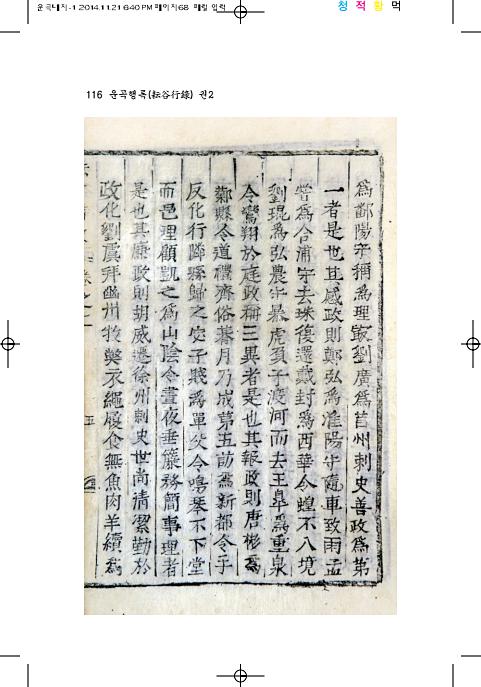 운곡내지-1 2014.11.21 6:40 PM 페이지68 매킬 입력
청 적 황 먹
116 운곡행록(耘谷行錄) 권2
爲鄱陽守稱爲理最劉廣爲莒州刺史善政爲第
一者是也其感政則鄭弘爲淮陽守隨車致雨孟
甞爲合浦守去珠復還戴封爲西華令蝗不入境
劉琨爲弘農守暴虎負子渡河而去王阜爲重泉
令鸞翔於庭政稱三異者是也其報政則唐彬爲
鄴縣令道禮齊俗朞月乃成第五訪爲新都令子
反化行隣縣歸之宓子賤爲單父令鳴琴不下堂
而邑理顧凱之爲山陰令晝夜垂簾務簡事理者
是也其廉政則胡威遷徐州刺史世尚清潔勤於
政化劉虞拜幽州牧弊衣繩履食無魚肉羊續爲
五